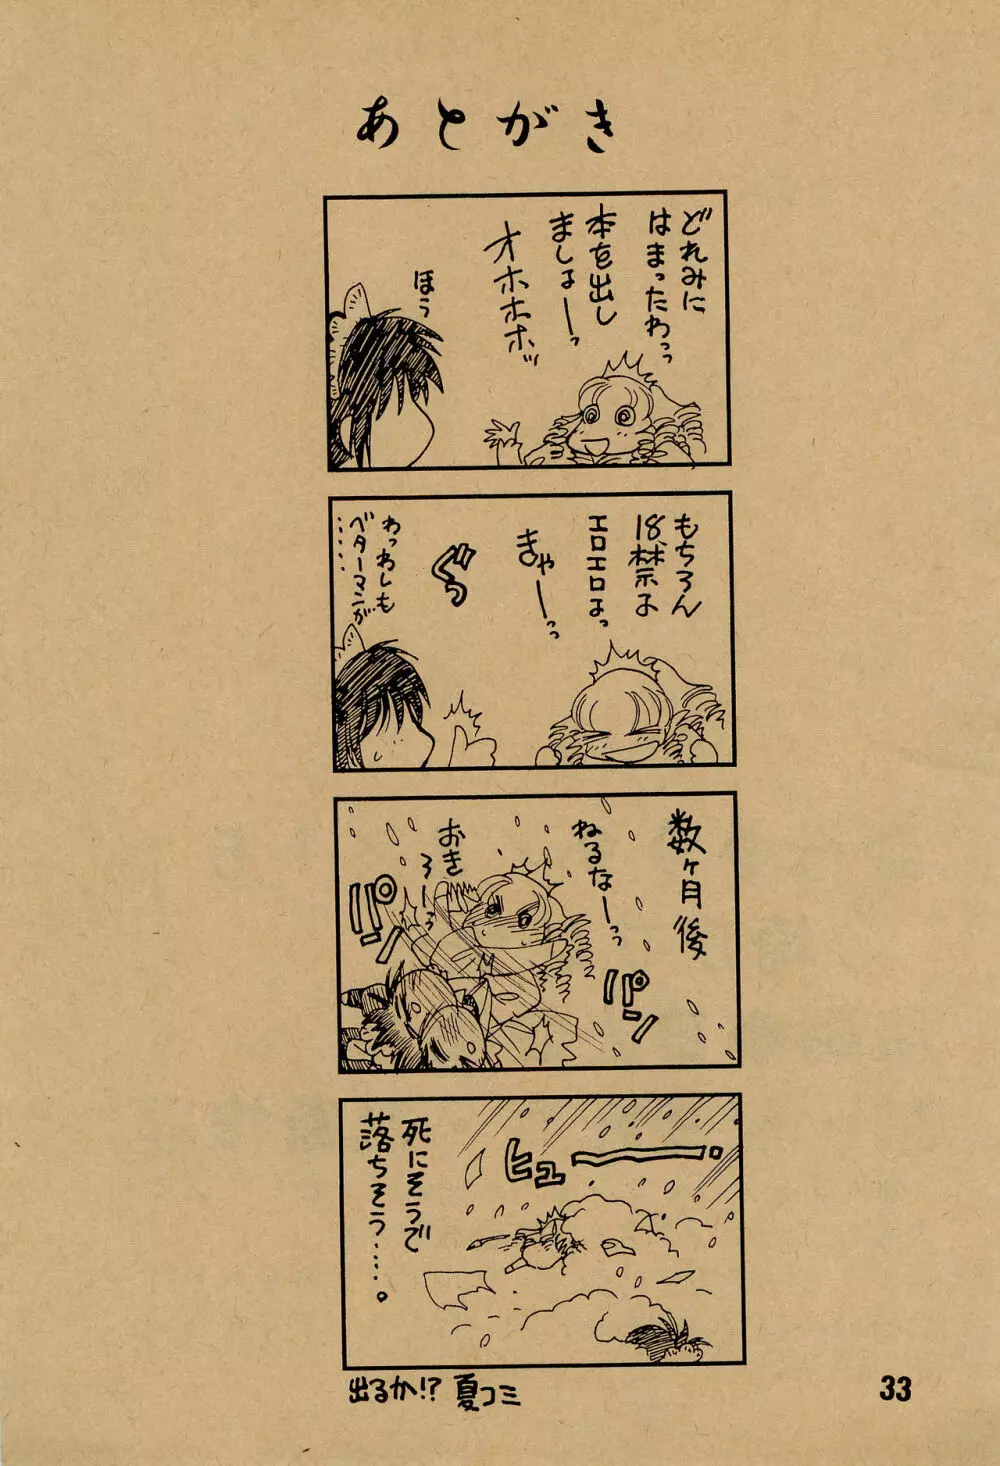 あとがき
どれみに
はまったわっっ
本を出し
ましょーーっ
オホホホッ
ほう
もちろん
18禁よ
エロエロよっ
きゃーーっっ
ぐっ
わっわしも
ベターマンが
‥‥‥
数ヶ月後
ねるなーっっ
おきろーっっ
パン
パン
ヒューーー
死にそうで
落ちそう‥‥‥。
出るか!?夏コミ
33